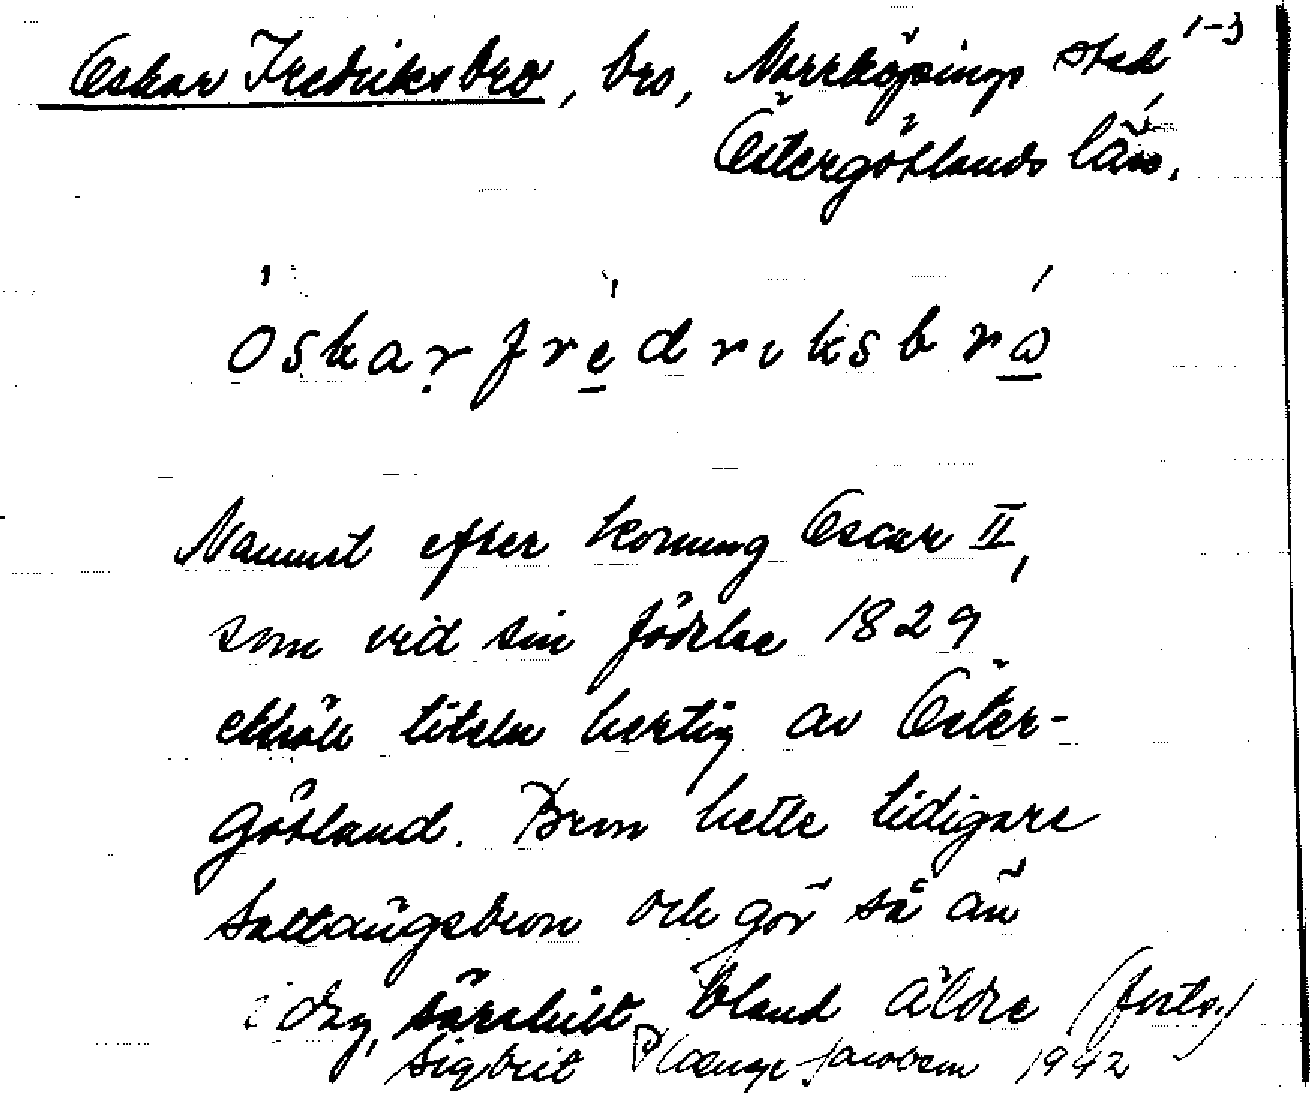 Oskar Fredriksbro, bro, Norrköpings stad 1-3
Östergötlands län.
Oskarfredriksbro
Namnet efter konung Oscar II,
som vid sin födelse 1829
erhöll titeln hertig av Öster-
götland. Bron hette tidigare
Saltängsbron och gör så än
i dag, särskilt bland äldre (forts.)
Sigbrit Plaenge-Jacobson 1942